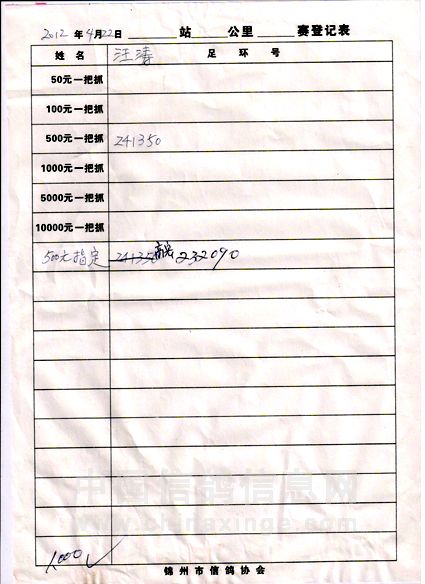 2012 年 4 月 22 日 站 公里 赛登记表
姓名 汪涛 足环号
50元一把抓
100元一把抓
500元一把抓 241350
1000元一把抓
5000元一把抓
10000元一把抓
500元指定 241350 232090
1000 ✓
中国信鸽信息网
www.chinaxinge.com
锦州市信鸽协会